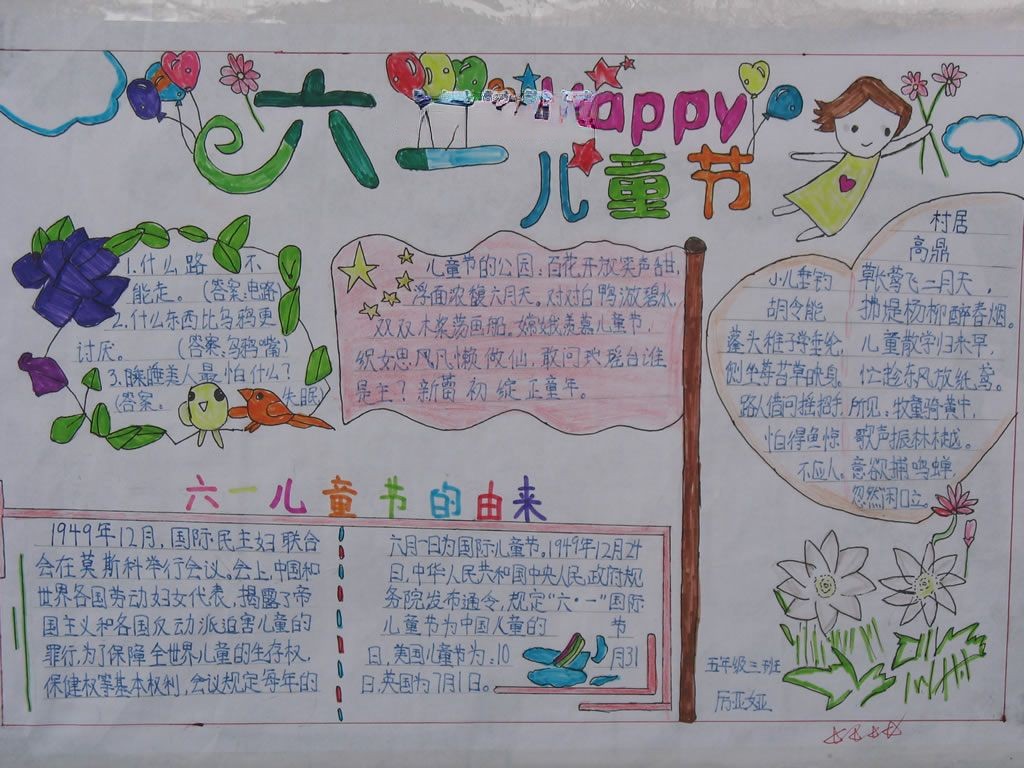 六一 Happy
儿童节
1.什么路 不
能走。(答案:电路)
2.什么东西比乌鸦更
讨厌。 (答案:乌鸦嘴)
3.睡美人最怕什么?
(答案. 失眠)
儿童节的公园:百花开放笑声甜,
浮面浓馥六月天。对对白鸭游碧水,
双双木桨荡画船。嫦娥羡慕儿童节,
织女思凡懒做仙.敢问瑶台谁
是主?新蕾初绽正童年。
村居
高鼎
草长莺飞二月天,
拂堤杨柳醉春烟。
儿童散学归来早,
忙趁东风放纸鸢。
小儿垂钓
胡令能
蓬头稚子学垂纶,
侧坐莓苔草映身。
路人借问摇招手,
怕得鱼惊
不应人.
所见:牧童骑黄牛,
歌声振林樾。
意欲捕鸣蝉,
忽然闭口立。
六一儿童节的由来
1949年12月,国际民主妇联合
会在莫斯科举行会议。会上,中国和
世界各国劳动妇女代表,揭露了帝
国主义和各国反动派迫害儿童的
罪行,为了保障全世界儿童的生存权,
保健权等基本权利,会议规定每年的
六月一日为国际儿童节。1949年12月24
日,中华人民共和国中央人民政府规
务院发布通令,规定“六·一”国际
儿童节为中国儿童的 节
日,美国儿童节为:10 月31
日,英国为7月1日。
五年级三班
厉亚娅